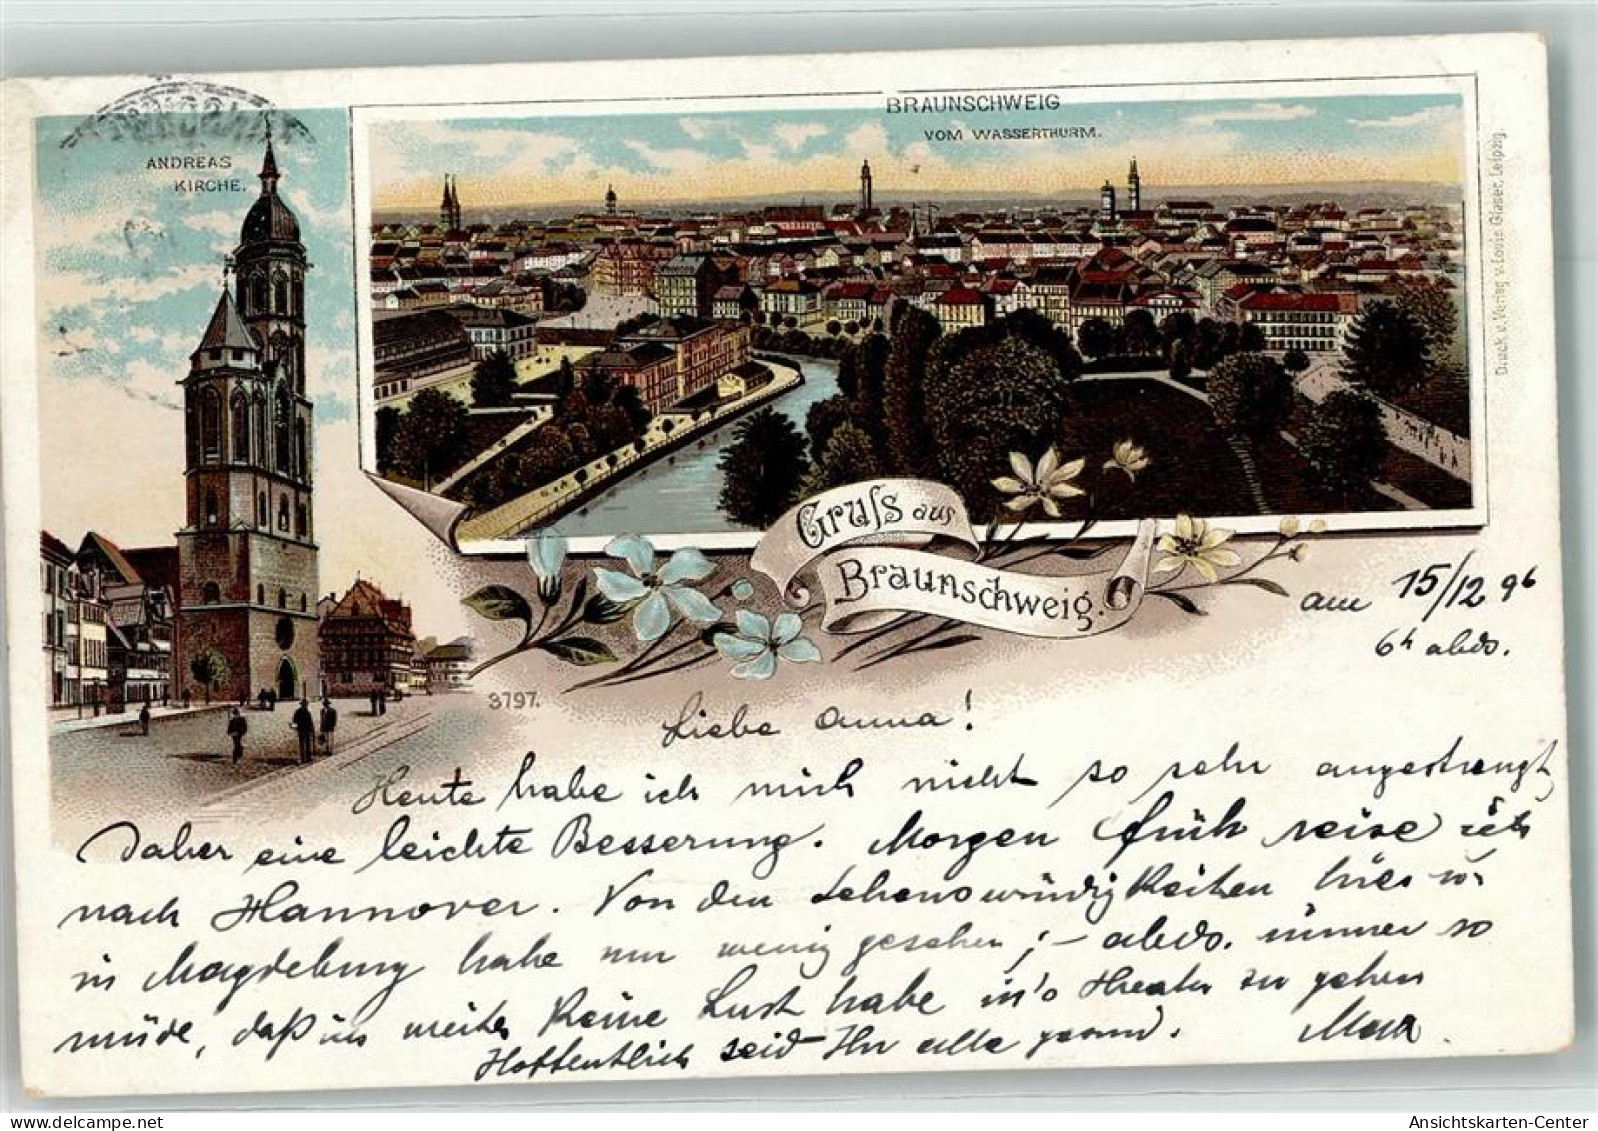 ANDREAS
KIRCHE.
BRAUNSCHWEIG
VOM WASSERTHURM.
Druck u. Verlag v. Louis Glaser, Leipzig.
Gruſs aus
Braunschweig.
3797.
am 15/12 96
6h abds.
Liebe Anna!
Heute habe ich mich nicht so sehr angestrengt,
daher eine leichte Besserung. Morgen früh reise ich
nach Hannover. Von den Sehenswürdigkeiten hier u.
in Magdeburg habe nur wenig gesehen; – abds. immer so
müde, daß ich weiter keine Lust habe in's Theater zu gehen
Hoffentlich seid Ihr alle gesund. Max
Ansichtskarten-Center